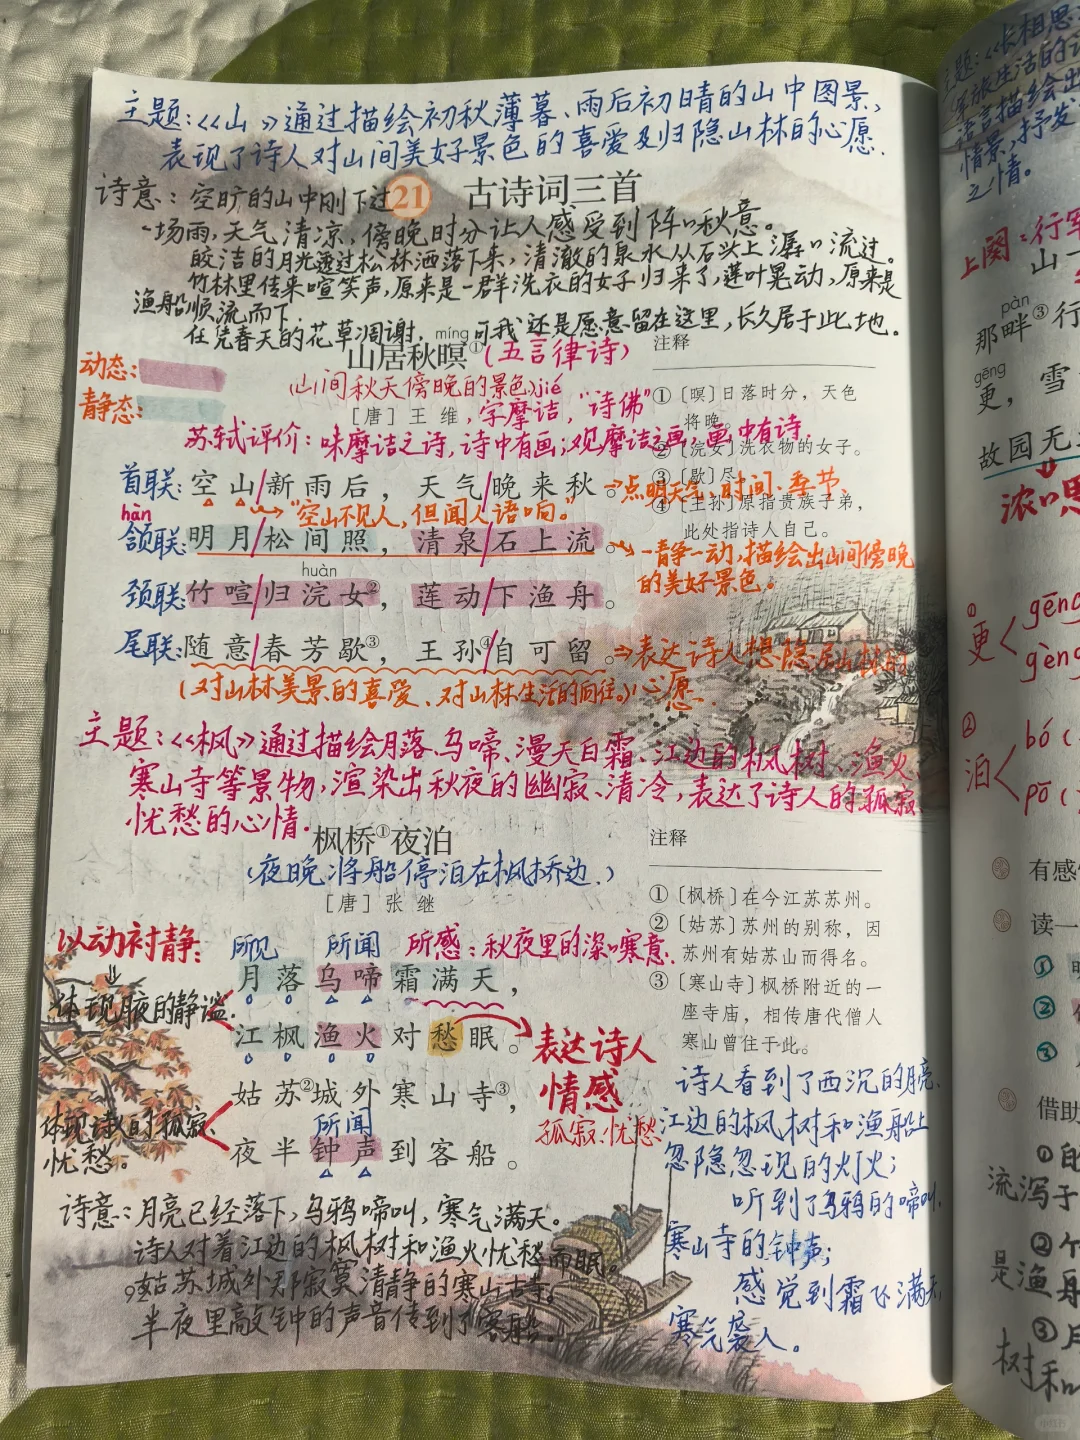 主题:《山》通过描绘初秋薄暮、雨后初晴的山中图景,
表现了诗人对山间美好景色的喜爱及归隐山林的心愿.
21 古诗词三首
诗意:空旷的山中刚下过
一场雨,天气清凉,傍晚时分让人感受到阵阵秋意。
皎洁的月光透过松林洒落下来,清澈的泉水从石头上潺潺流过。
竹林里传来喧笑声,原来是一群洗衣的女子归来了,莲叶晃动,原来是
渔船顺流而下.
任凭春天的花草凋谢,可我还是愿意留在这里,长久居于此地.
míng
山居秋暝①(五言律诗)
动态:
静态:
(山间秋天傍晚的景色)jié
[唐]王维,字摩诘,"诗佛"
苏轼评价:味摩诘之诗,诗中有画;观摩诘之画,画中有诗.
首联:空山/新雨后,天气/晚来秋。→点明天气、时间、季节、
"空山不见人,但闻人语响。"
hàn
颔联:明月/松间照,清泉/石上流。→一静一动,描绘出山间傍晚
的美好景色。
huàn
颈联:竹喧/归浣女②,莲动/下渔舟。
尾联:随意/春芳歇③,王孙④/自可留。→表达诗人想隐居山林的
(对山林美景的喜爱、对山林生活的向往.)心愿.
注释
①〔暝〕日落时分,天色
将晚。
②〔浣女〕洗衣物的女子。
③〔歇〕尽。
④〔王孙〕原指贵族子弟,
此处指诗人自己。
主题:《枫》通过描绘月落、乌啼、漫天白霜、江边的枫树、渔火、
寒山寺等景物,渲染出秋夜的幽寂、清冷,表达了诗人的孤寂
忧愁的心情.
枫桥①夜泊
(夜晚将船停泊在枫桥边.)
[唐]张继
以动衬静:
所见 所闻 所感:秋夜里的深深寒意.
月落乌啼霜满天,
体现月夜的静谧.
江枫渔火对愁眠。
表达诗人
情感
孤寂、忧愁
姑苏②城外寒山寺③,
体现诗人的孤寂、
忧愁。
所闻
夜半钟声到客船。
注释
①〔枫桥〕在今江苏苏州。
②〔姑苏〕苏州的别称,因
苏州有姑苏山而得名。
③〔寒山寺〕枫桥附近的一
座寺庙,相传唐代僧人
寒山曾住于此。
诗人看到了西沉的月亮、
江边的枫树和渔船上
忽隐忽现的灯火;
听到了乌鸦的啼叫,
寒山寺的钟声;
感觉到霜飞满天,
寒气袭人。
诗意:月亮已经落下,乌鸦啼叫,寒气满天。
诗人对着江边的枫树和渔火忧愁而眠。
姑苏城外那寂寞清静的寒山古寺。
半夜里敲钟的声音传到了客船。
主题:《长相思
语言描绘出
情景,抒发
之情。
上阕:行军
山一
pàn
那畔③行
gēng
更,雪
故园无
浓浓思
①
更 gēng
gèng
②
泊 bó(
pō(
有感情
读一
①
②
③
借助
①的
流泻于
②个
是渔舟
③月
树和